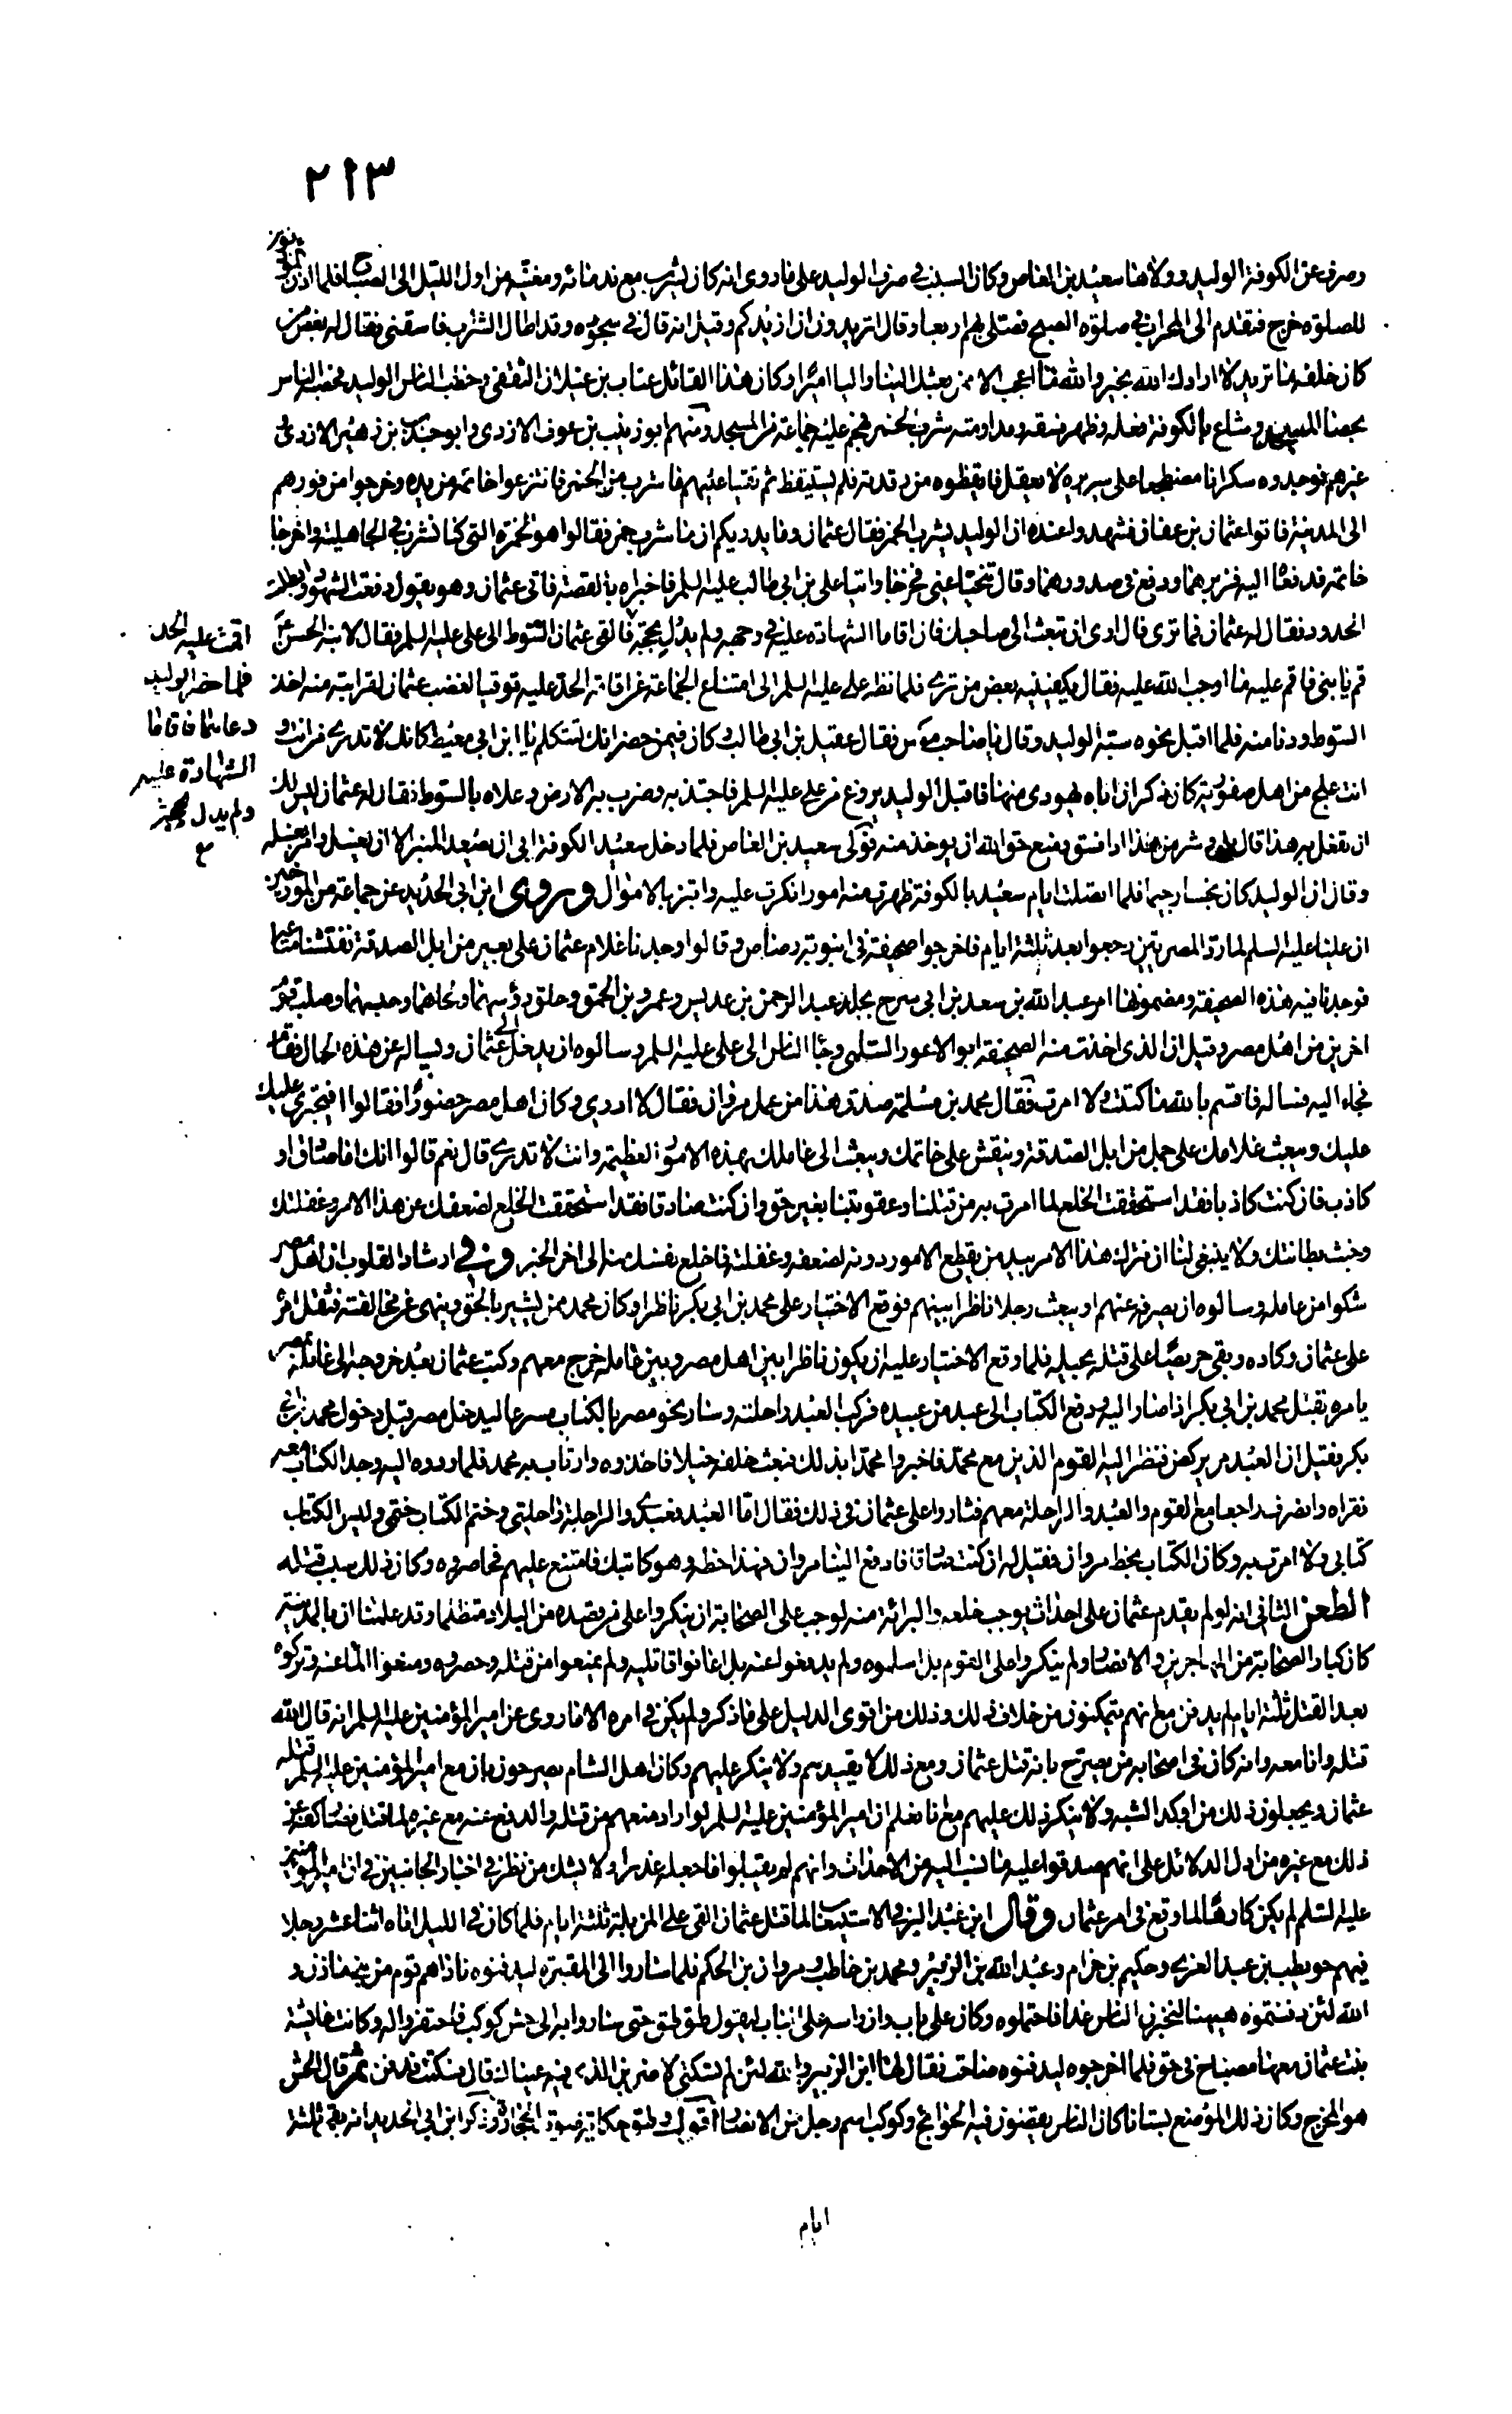 ٢١٣
وصرف عن الكوفة الوليد وولاها سعيد بن العاص وكان السبب في صرف الوليد على ما روى انه كان يشرب مع ندمائه ومغنيه من اول الليل الى الصباح فلما اذن
للصلوة خرج فتقدم الى المحراب في صلوة الصبح فصلى بهم اربعا وقال اتريدون ان ازيدكم وقيل انه قال في سجوده وقد اطال الشراب فاسقنى فقال له بعض من
كان خلفه ما تريد لا زادك الله بخير والله ما اعجب الا ممن بعثك الينا واليا اميرا وكان هذا القائل عتاب بن غيلان الثقفى وخطب الناس الوليد فحصبه الناس
بحصا المسجد وشاع بالكوفة فعله وظهر فسقه ومداومته شرب الخمر فهجم عليه جماعة من المسجد منهم ابو زينب بن عوف الازدى وابو جندب بن زهير الازدى و
غيرهم فوجدوه سكرانا مضطجعا على سريره لا يعقل فايقظوه من رقدته فلم يستيقظ ثم تقيا عليهم ما شرب من الخمر فانتزعوا خاتمه من يده وخرجوا من فورهم
الى المدينة فاتوا عثمان بن عفان فشهدوا عنده ان الوليد يشرب الخمر فقال عثمان وما يدريكم ان ما شرب خمر فقالوا هو الخمرة التي كنا نشرب في الجاهلية واخرجا
خاتمه فدفعاه اليه فزبرهما ودفع في صدورهما وقال تنحيا عنى فخرجا واتيا على بن ابي طالب عليه السلم فاخبراه بالقصة فاتى عثمان وهو يقول دفعت الشهود وابطلت
الحدود فقال له عثمان فما ترى قال ارى ان تبعث الى صاحبك فان اقاما الشهادة عليه في وجهه ولم يدل بحجة فالقى عثمان السوط الى على عليه السلم فقال لابنه الحسن
قم يا بنى فاقم عليه ما اوجب الله عليه فقال يكفينيه بعض من ترى فلما نظر على عليه السلم الى امتناع الجماعة عن اقامة الحد عليه توقيا لغضب عثمان لقرابته منه اخذ
السوط ودنا منه فلما اقبل نحوه سبه الوليد وقال يا صاحب مكس فقال عقيل بن ابي طالب وكان فيمن حضر انك لتتكلم يا ابن ابي معيط كانك لا تدرى من انت و
انت علج من اهل صفورية كان ذكر ان اباه يهودى منها فاقبل الوليد يروغ من على عليه السلم فاجتذبه وضرب به الارض وعلاه بالسوط فقال له عثمان ليس لك
ان تفعل به هذا قال بلى وشر من هذا اذا فسق ومنع حق الله ان يوخذ منه فولى سعيد بن العاص فلما دخل سعيد الكوفة ابى ان يصعد المنبر الا ان يغسل وامر بغسله
وقال ان الوليد كان نجسا رجيما فلما اتصلت ايام سعيد بالكوفة ظهرت منه امور انكرت عليه وابتز بالاموال وروى ابن ابي الحديد عن جماعة من المورخين
ان عليا عليه السلم لما رد المصريين رجعوا بعد ثلثة ايام فاخرجوا صحيفة في انبوبة رصاص وقالوا وجدنا غلام عثمان على بعير من ابل الصدقة ففتشنا متاعه
فوجدنا فيه هذه الصحيفة ومضمونها امر عبد الله بن سعد بن ابي سرح بجلد عبد الرحمن بن عديس وعمرو بن الحمق وحلق رؤسهما ولحاهما وحبسهما وصلب قوم
اخرين من اهل مصر وقيل ان الذى اخذت منه الصحيفة ابو الاعور السلمى وجاء الناس الى على عليه السلم وسالوه ان يدخل الى عثمان ويساله عن هذه الحال فقام
فجاء اليه فساله فاقسم بالله ما كتبته ولا امرت فقال محمد بن مسلمة صدق هذا من عمل مروان فقال لا ادرى وكان اهل مصر حضورا فقالوا افيجترى عليك
عليك ويبعث غلامك على جمل من ابل الصدقة وينقش على خاتمك ويبعث الى عاملك بهذه الامور العظيمة وانت لا تدرى قال نعم قالوا انك اما صادق او
كاذب فان كنت كاذبا فقد استحققت الخلع لما امرت به من قتلنا وعقوبتنا بغير حق وان كنت صادقا فقد استحققت الخلع لضعفك عن هذا الامر وغفلتك
وخبث بطانتك ولا ينبغى لنا ان نترك هذا الامر بيد من يقطع الامور دونه لضعفه وغفلته فاخلع نفسك منه الى اخر الخبر وفي ارشاد القلوب ان اهل مصر
شكوا من عامله وسالوه ان يصرفه عنهم او يبعث رجلا ناظرا بينهم فوقع الاختيار على محمد بن ابي بكر ناظرا وكان محمد ممن يشير بالحق وينهى عن مخالفته فثقل امره
على عثمان وكاده وبقى حريصا على قتله بحيلة فلما وقع الاختيار عليه ان يكون ناظرا بين اهل مصر وبين عامله خرج معهم وكتب عثمان بعد خروجه الى عامله بمصر
يامره بقتل محمد بن ابي بكر اذا صار اليه ودفع الكتاب الى عبد من عبيده فركب العبد راحلته وسار نحو مصر بالكتاب مسرعا ليدخل مصر قبل دخول محمد بن ابي
بكر فقيل ان العبد مر يركض فنظر اليه القوم الذين مع محمد فاخبروا محمدا بذلك فبعث خلفه خيلا فاخذوه وارتاب به محمد فلما ردوه اليه وجد الكتاب معه
فقراه وانصرف راجعا مع القوم والعبد والراحلة معهم فثاروا على عثمان في ذلك فقال اما العبد فعبدى والراحلة راحلتى وختم الكتاب ختمى وليس الكتاب
كتابى ولا امرت به وكان الكتاب بخط مروان فقيل له ان كنت صادقا فادفع الينا مروان فهذا خطه وهو كاتبك فامتنع عليهم فحاصروه وكان ذلك سبب قتله
الطعن الثاني انه لو لم يقدم عثمان على احداث يوجب خلعه والبرائة منه لوجب على الصحابة ان ينكروا على من قصده من البلاد متظلما وقد علمنا ان بالمدينة
كان كبار الصحابة من المهاجرين والانصار ولم ينكروا على القوم بل اسلموه ولم يدفعوا عنه بل اعانوا قاتليه ولم يمنعوا من قتله وحصروه ومنعوا الماء عنه وتركوه
بعد القتل ثلثة ايام لم يدفن مع انهم متمكنون من خلاف ذلك وذلك من اقوى الدليل على ما ذكر ولو لم يكن في امره الا ما روى عن امير المؤمنين عليه السلم انه قال الله
قتله وانا معه وانه كان في اصحابه من يصرح بانه قتل عثمان ومع ذلك لا يقيدهم ولا ينكر عليهم وكان اهل الشام يصرحون بان مع امير المؤمنين عليه السلم قتلة
عثمان ويجعلون ذلك من اوكد الشبه ولا ينكر ذلك عليهم مع انا نعلم ان امير المؤمنين عليه السلم لو اراد منعهم من قتله والدفع عنه مع غيره لما قتل فصار كفه عن
ذلك مع غيره من ادل الدلائل على انهم صدقوا عليه ما نسب اليه من الاحداث وانهم لم يقبلوا ما جعله عذرا ولا يشك من نظر في اخبار الجانبين في ان امير المؤمنين
عليه السلم لم يكن كارها لما وقع في امر عثمان وقال ابن عبد البر في الاستيعاب لما قتل عثمان القى على المزبلة ثلثة ايام فلما كان في الليل اتاه اثنا عشر رجلا
فيهم حويطب بن عبد العزى وحكيم بن حزام وعبد الله بن الزبير ومحمد بن حاطب ومروان بن الحكم فلما ساروا الى المقبرة ليدفنوه ناداهم قوم من بنى مازن و
الله لئن دفنتموه هيهنا لنخبرن الناس غدا فاحتملوه وكان على باب وان راسه على الباب ليقول طق طق حتى ساروا به الى حش كوكب فاحتفروا له وكانت عائشة
بنت عثمان معها مصباح في حق فلما اخرجوه ليدفنوه صاحت فقال لها ابن الزبير والله لئن لم تسكتى لاضربن الذى فيه عيناك قال فسكتت فدفن ثم قال الحش
هو المخرج وكان ذلك الموضع بستانا كان الناس يقضون فيه الحوائج وكوكب اسم رجل من الانصار اقول وطق حكاية صوت الحجارة وذكر ابن ابي الحديد انه بقى ثلثة
ايام
اقمت عليه الحد
فلما حضر الوليد
دعاهما فاقاما
الشهادة عليه
ولم يدل بحجة